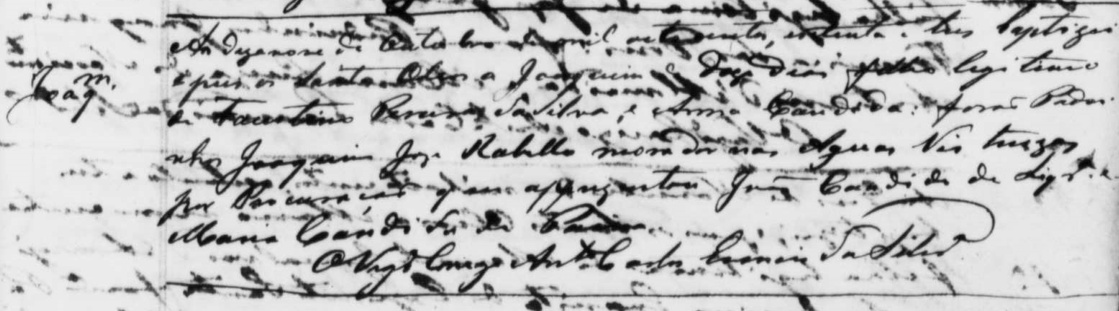 Joaqm.
Aos dezanove de Outubro de mil oitocentos, e setenta e tres baptizei
e puz os Santos Oleos a Joaquim de doze dias filho legitimo
de Faustino Pereira da Silva, e Anna Candida: forão Padri
nhos Joaquim Joze Rabello morador nas Aguas Virtuozas
por Procuração q em aprezentou João Candido de e
Maria Candida de
O Vigr.o Conego Ant.o Carlos da Silva